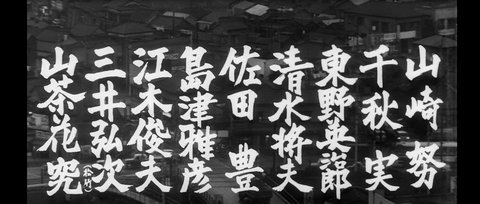 山崎努
千秋実
東野英治郎
清水将夫
佐田豊
島津雅彦
江木俊夫
三井弘次
(松竹)
山茶花究